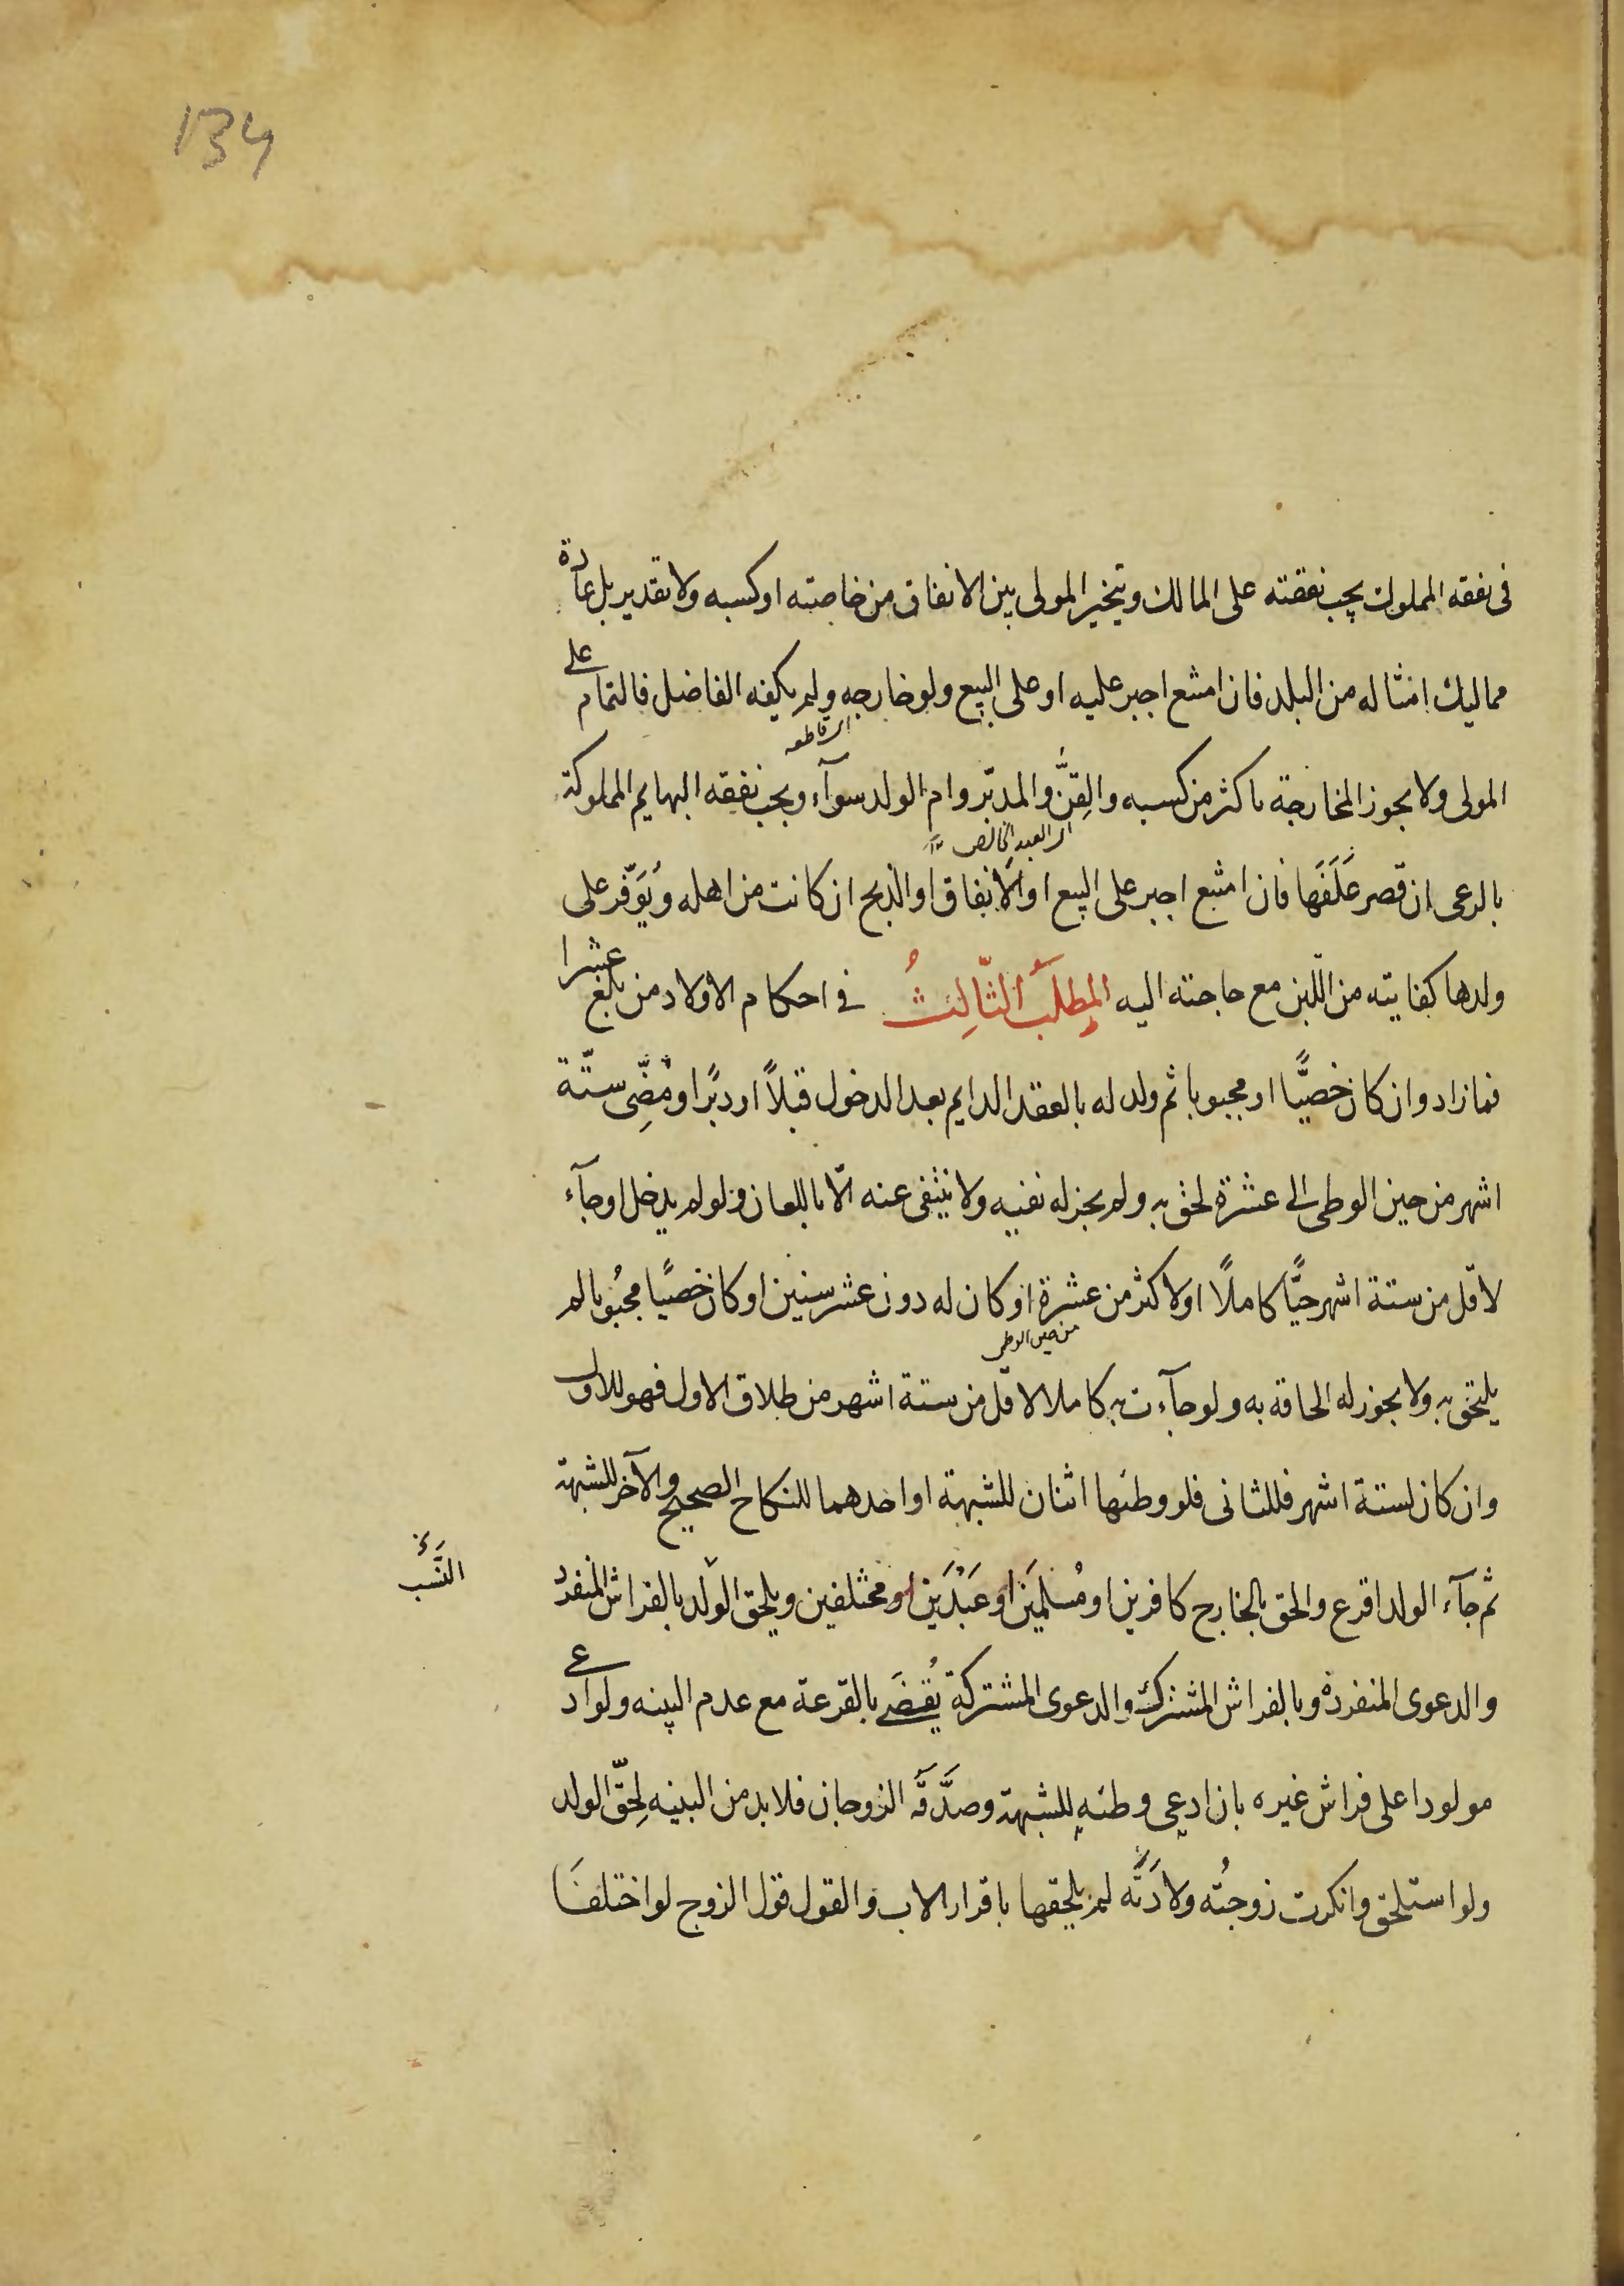 134
فى نفقه المملوك يجب نفقته على المالك ويتخير المولى بين الانفاق من خاصته او كسبه ولا تقدير بل عادة
مماليك امثاله من البلد فان امتنع اجبر عليه او على البيع ولو خارجه ولم يكفه الفاضل فالتمام على
المولى ولا يجوز المخارجة باكثر من كسبه والقِنُّ والمدبّر وام الولد سوآء ويجب نفقه البهايم المملوكة
اى العبد الخالص
بالرعى ان قصر عَلَفَها فان امتنع اجبر على البيع او الانفاق او الذبح ان كانت من اهله ويُوَفّر على
ولدها كفايته من اللّبن مع حاجته اليه المطلَبُ الثّالِثُ فى احكام الاولاد من بلغ عشرا
فما زاد وان كان خصيًّا او مجبوبا ثم ولد له بالعقد الدايم بعد الدخول قبلاً او دبرًا ومُضِّى ستّة
اشهر من حين الوطى الى عشرة لحق به ولم يجز له نفيه ولا ينتفى عنه الّا باللعان ولو لم يدخل او جآء
لاقل من ستة اشهر حيًّا كاملًا او لاكثر من عشرة او كان له دون عشر سنين او كان خصيًا مجبُوبا لم
من حين الوطى
يلتحق به ولا يجوز له الحاقه به ولو جآءت به كاملا لاقلّ من ستة اشهر من طلاق الاول فهو للاول
وان كان لستة اشهر فللثانى فلو وطئها اثنان للشبهة او احدهما للنكاح الصحيح والآخر للشبهة
ثم جآء الولد اقرع والحق بالخارج كافرين او مُسلمَين او عَبْدَين او مختلفين ويلحق الولد بالفراش المنفرد
النَّسَب
والدعوى المنفردة وبالفراش المشترك والدعوى المشتركة يُقضَى بالقرعة مع عدم البينه ولو ادعى
مولودا على فراش غيره بان ادعى وطئه للشبهة وصدَّقَه الزوجان فلا بد من البينه لِحَقّ الولد
ولو استلحق وانكرت زوجتُه ولادَتَه لم يلحقها باقرار الاب والقول قول الزوج لو اختلفَا